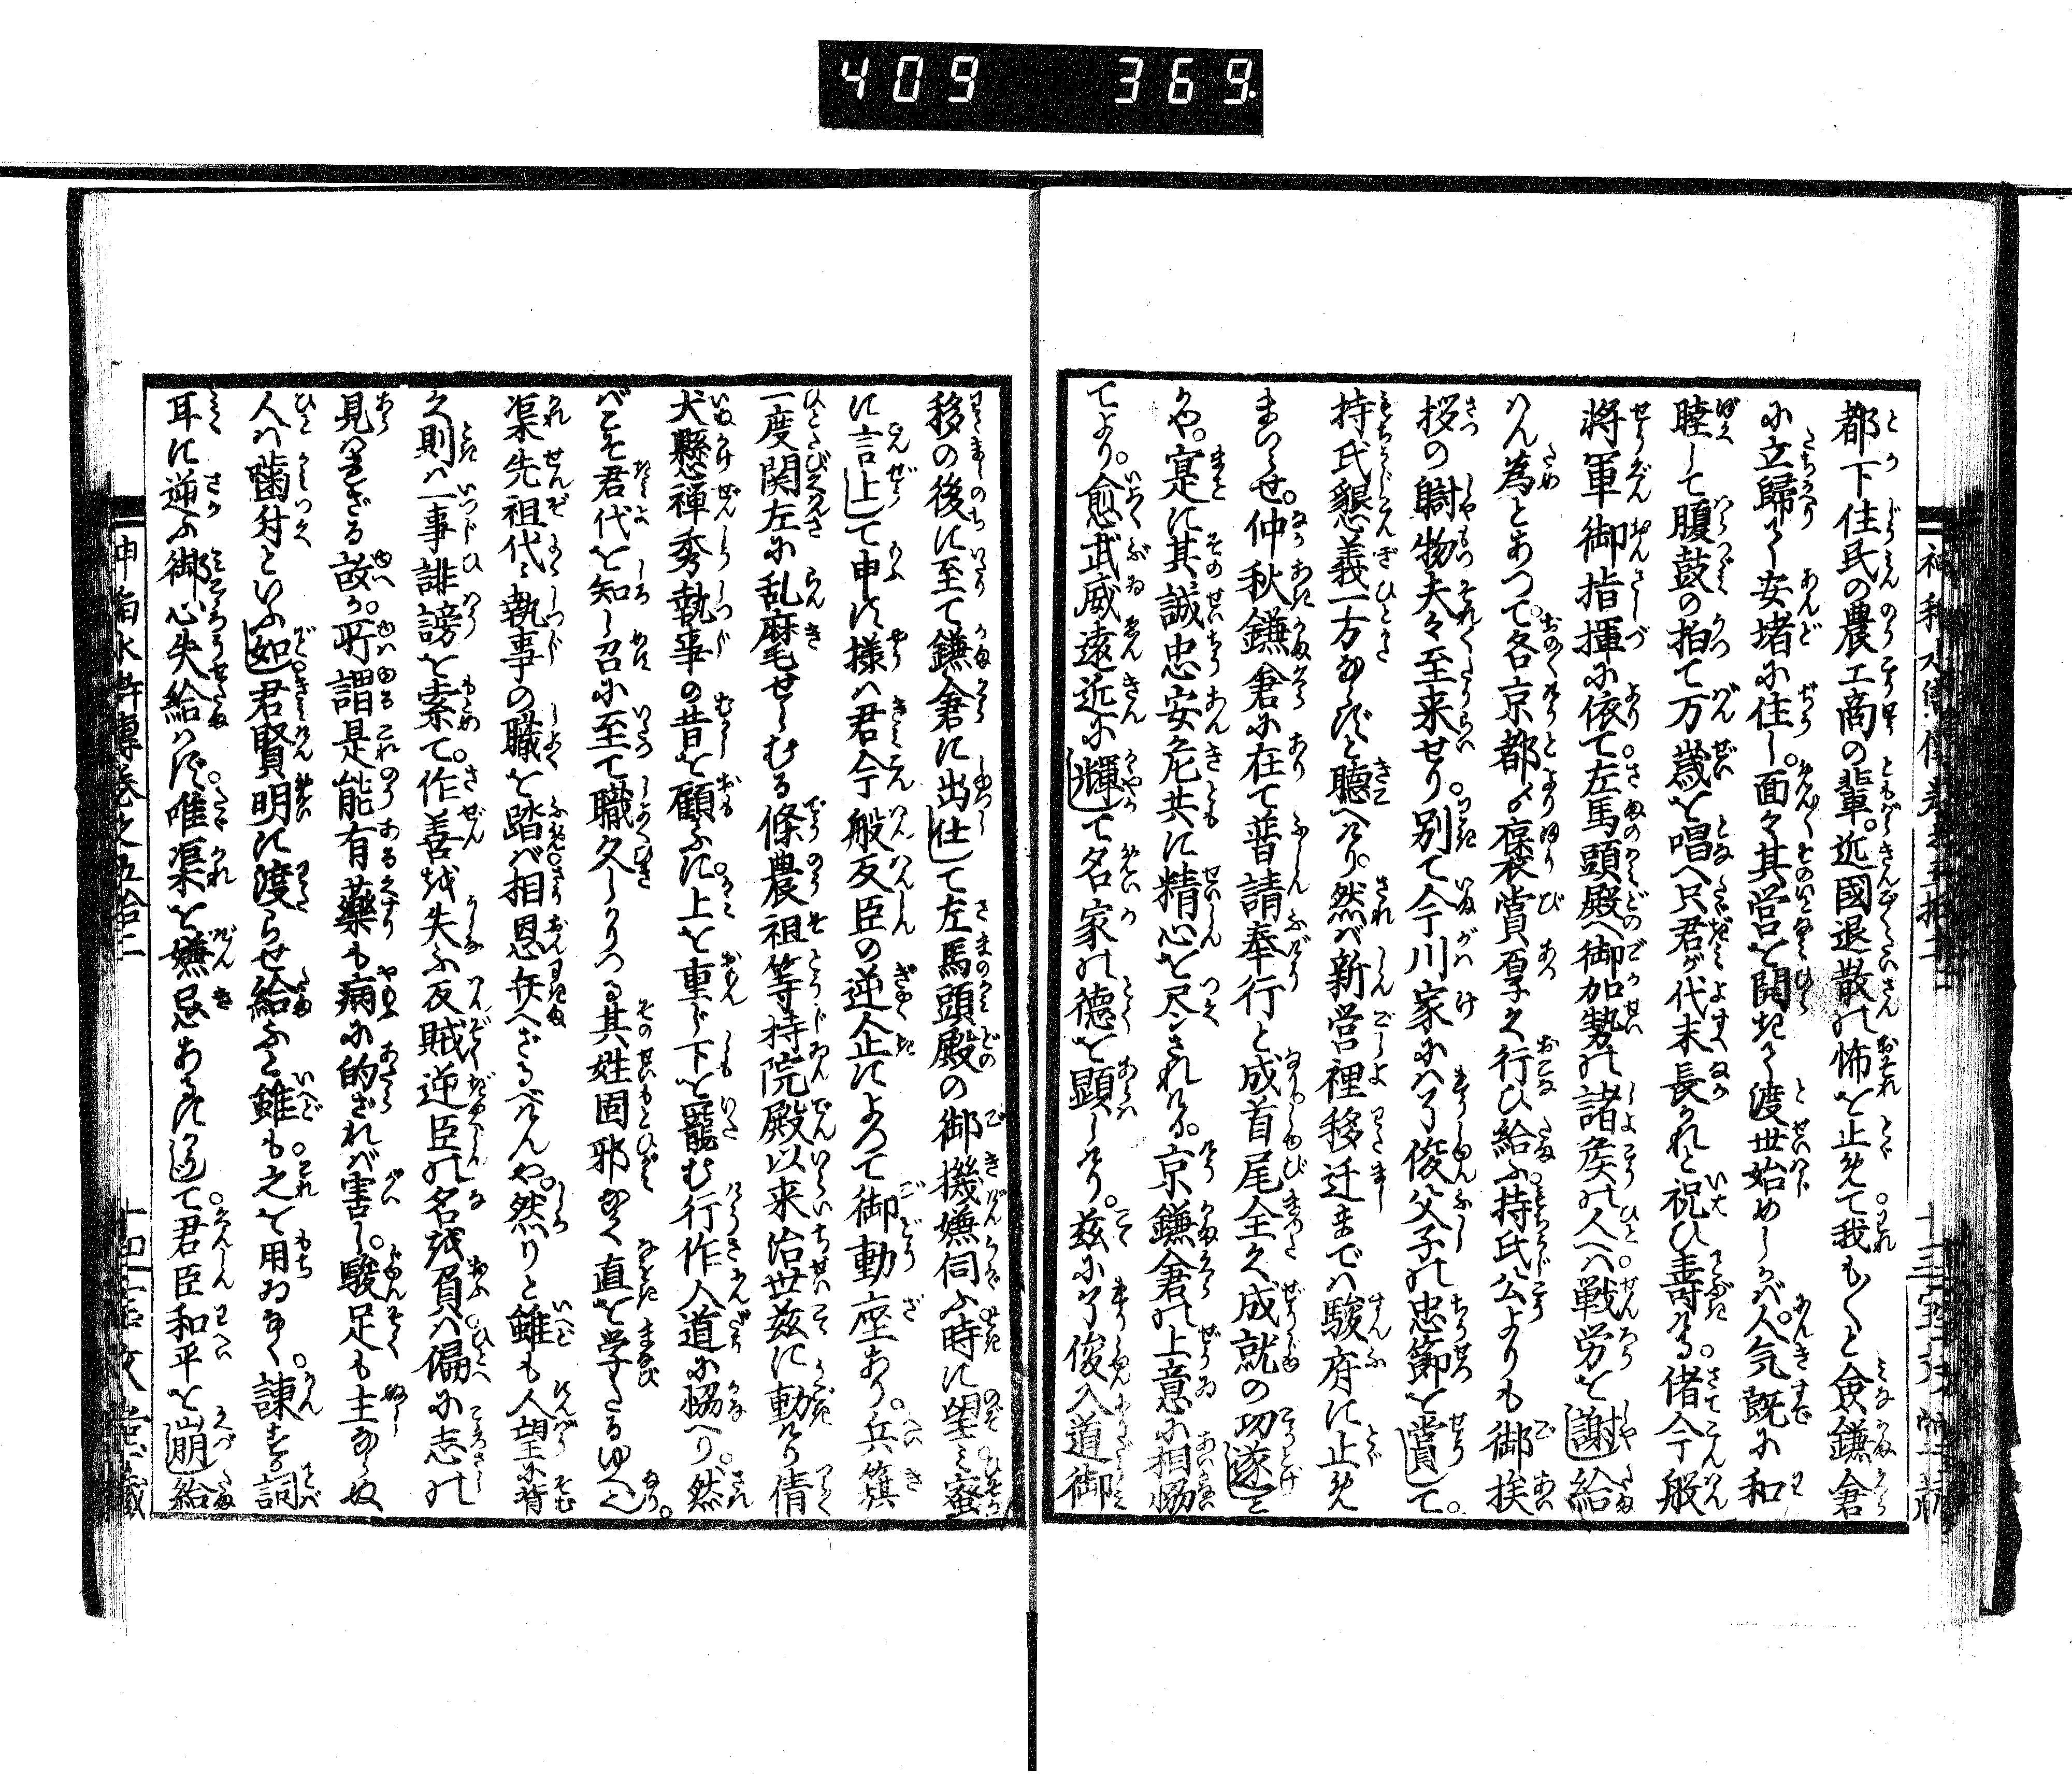 409 369.
都下住民の農工商の輩。近國退散の怖を止めて我も〳〵と僉鎌倉
に立歸て安堵に住し。面々其営を開きて渡世始めしが。人気既に和
睦して腹鼓の拍て万歳を唱へ只君が代末長かれと祝ひ壽ける偖今般
将軍御指揮に依て。左馬頭殿へ御加勢の諸矦の人へハ。戦労を謝し給
はん為とあつて。各京都より褒賞厚く行ひ給ふ。持氏公よりも御挨
拶の贈物夫々至来せり。別て今川家にハ了俊父子の忠節を賞して。
持氏懇義一方ならずと聴へけり。然ば新営裡移迁までハ駿府に止め
まいらせ。仲秋鎌倉に在て普請奉行と成首尾全く成就の功遂しと
かや。寔に其誠忠安危共に精心を尽されける。京鎌倉の上意に相協
てより。愈武威遠近に輝て名家の德を顕しけり。茲に了俊入道御
移の後に至て鎌倉に出仕して左馬頭殿の御機嫌伺ふ時に望ミ蜜
に言上して申す様ハ君今般反臣の逆企によつて御動座あり。兵籏
一度関左に乱麾せしむる條農祖等持院殿以来治世茲に動けり倩
犬懸禅秀執事の昔を顧ふに。上を重じ下を寵む行作人道に協へり。然
ばこそ君代を知し召に至て職久しかりつる其姓固邪なく直を学たるゆへ也。
渠先祖代々執事の職を踏ば相恩弁へざるべけんや。然りと雖も人望に背
く則ハ一事誹謗を索て。作善を失ふ反賊逆臣の名を負ハ偏に志の
見ハれざる故か。所謂是能有薬も病に的ざれば害し。駿足も主ならぬ
人ハ噛付といふ如し君賢明に渡らせ給ふと雖も。之を用ゐなく。諫する詞
耳に逆ふ御心失給ハず。唯渠を嫌忌あらず。過て君臣和平を崩し給